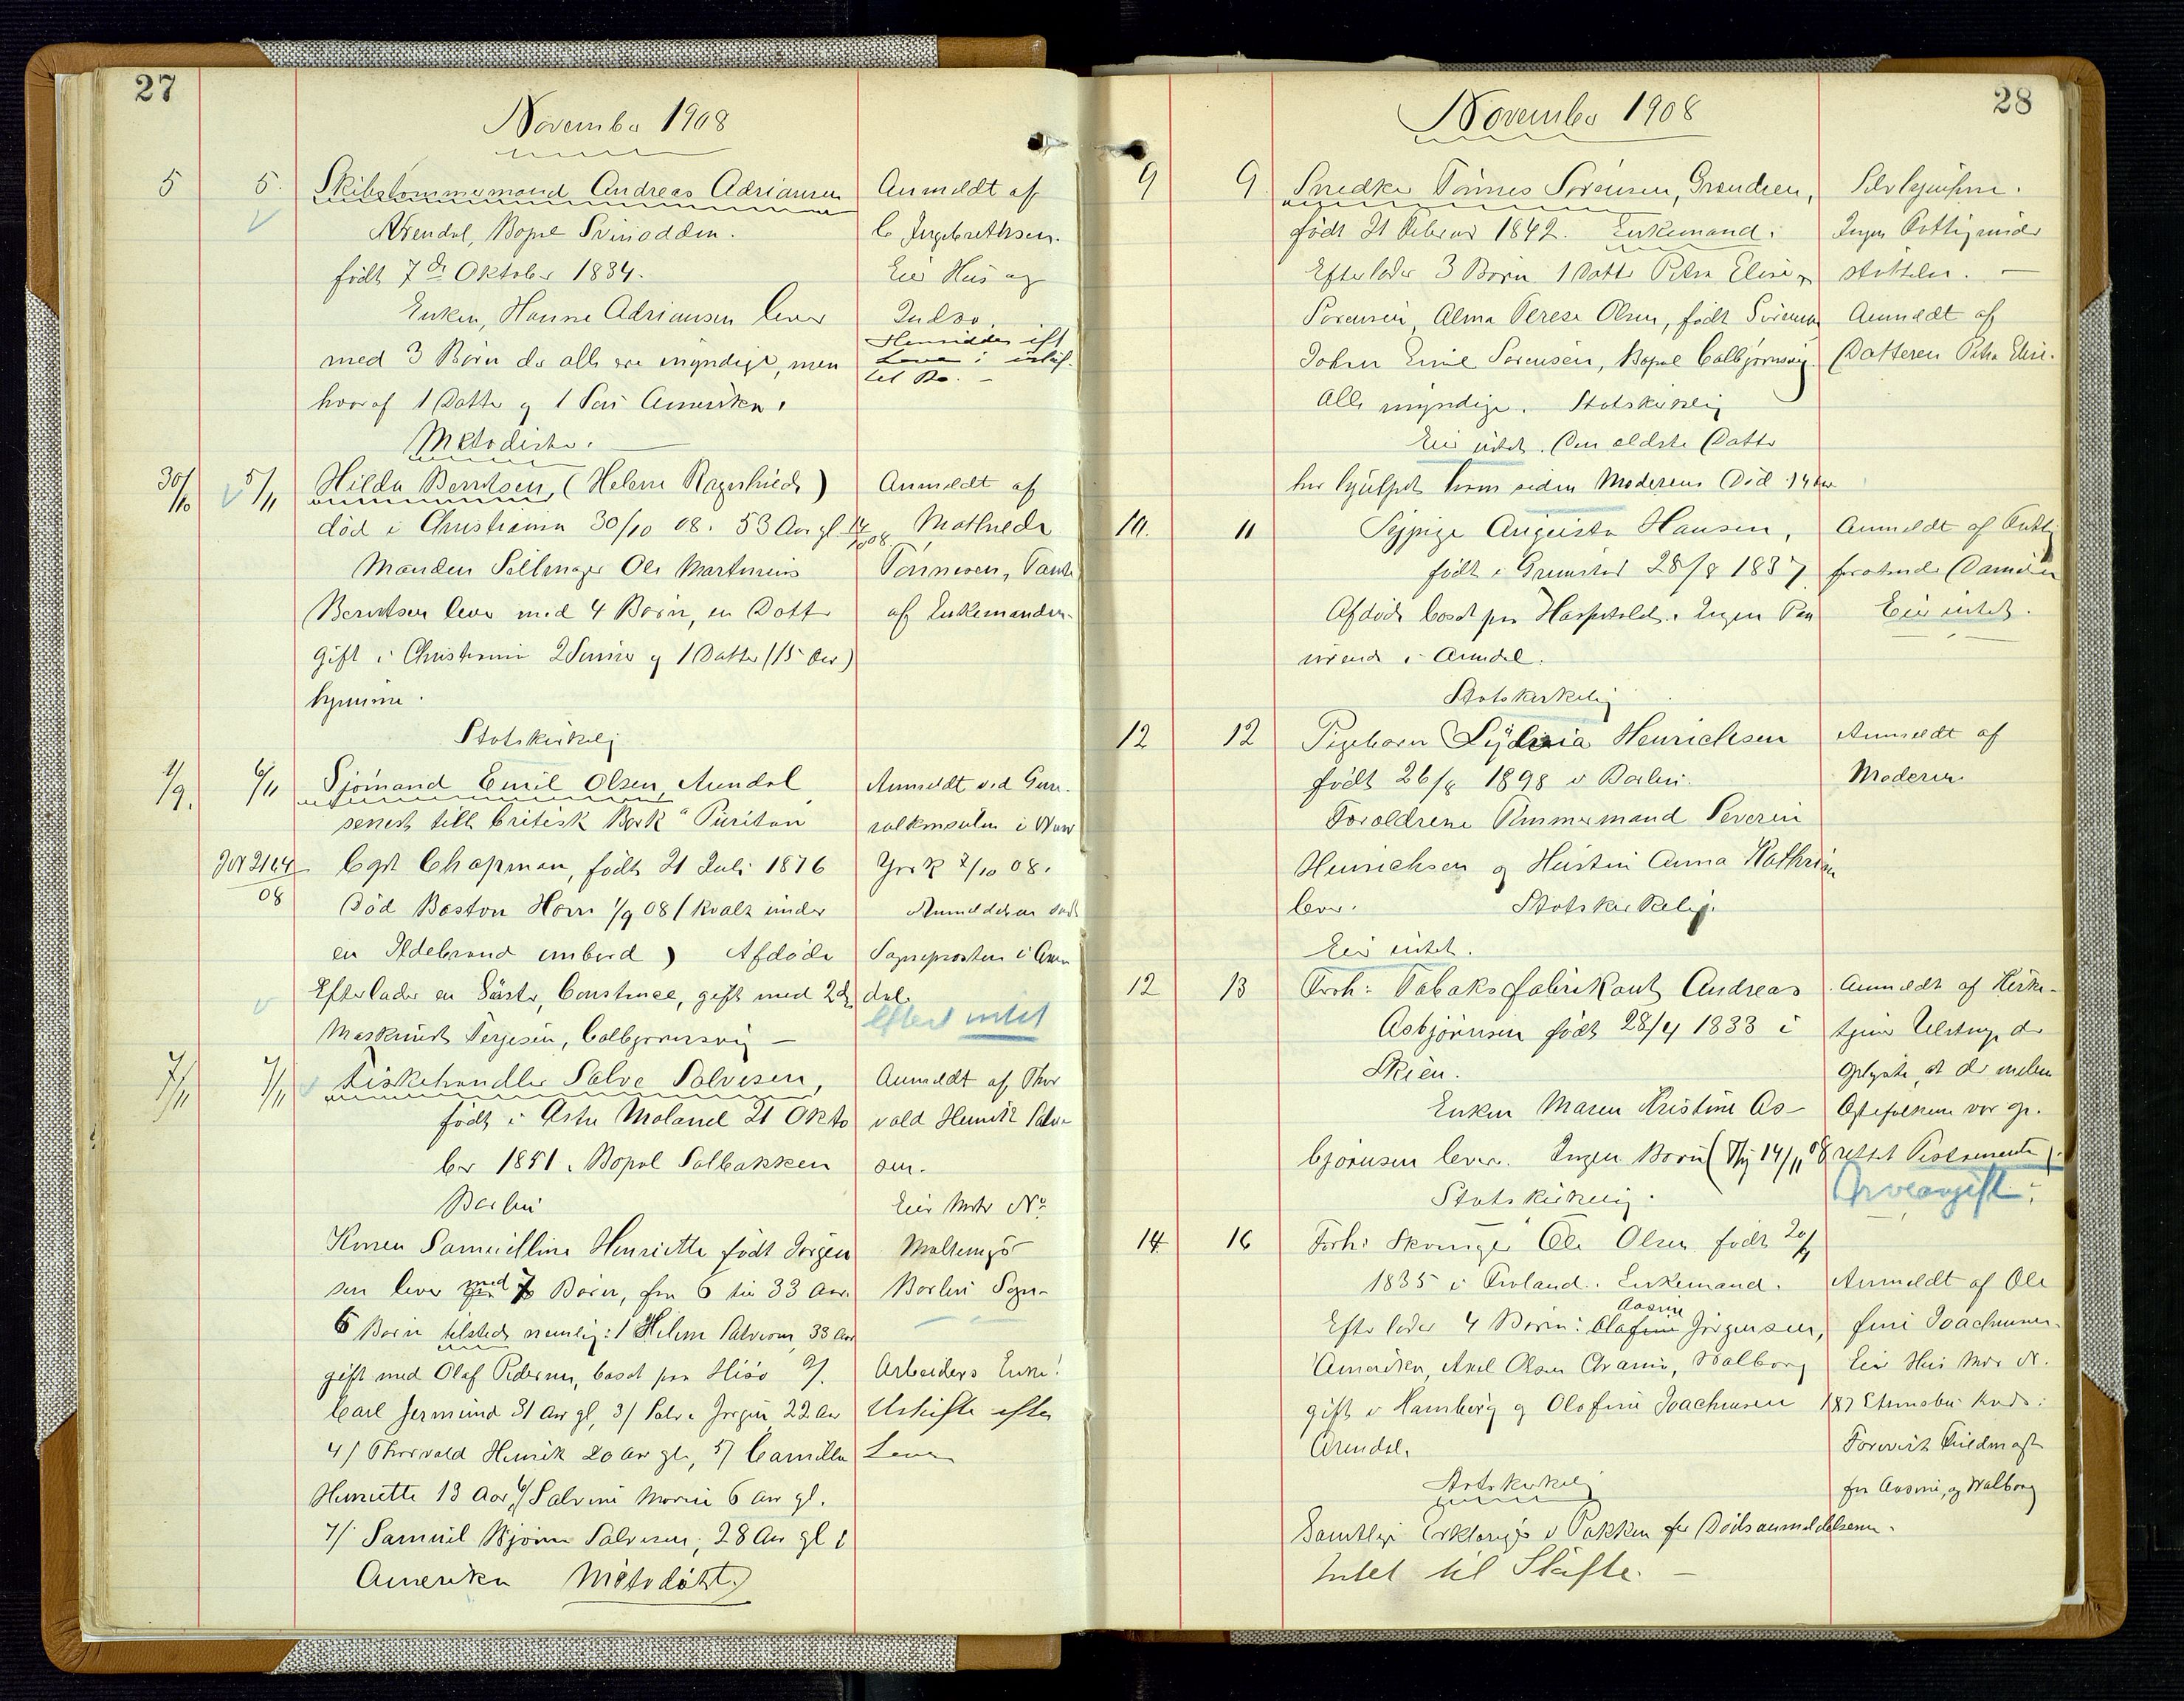 27
November 1908
5 5. Skibstømmermand Andreas Adriansen Anmeldt af
Arendal, Bopæl Svinodden. C Ingebrethsen.
født 7de Oktober 1834. Eier Hus og
Enken, Hanne Adriansen lever Indbo.
Hensidder ift
med 3 Børn der alle ere myndige, men Loven i uskif-
tet Bo. -
hvoraf 1 Datter og 1 Søn i Amerika.
Metodister.
30/10 5/11 Hilda Berntsen, (Helene Ragnhild) Anmeldt af
død i Christiania 30/10 08. 53 Aar gl. Mathilde
Manden Seilmager Ole Martinius Tønnesen, Tante
Berntsen lever med 4 Børn, en Datter af Enkemanden.
gift i Christiania 2 Sønner og 1 Datter (15 Aar)
hjemme.
Statskirkelig
1/9. 6/11 Sjømand Emil Olsen, Arendal Anmeldt ved Gene-
senest till britisk Bark "Puritan" ralkonsulen i New
Jd 2164 Cpt Chapman, født 21 Juli 1876 York 2/10 08.
08 Død Boston Havn 1/9 08 (kvalt under Anmeldelsen sendt
en Ildebrand ombord) Afdøde Sogneprosten i Aren
Efterlader en Søster, Constance, gift med 2den dal.
Efterl intet
Maskinist Terjesen, Colbjørnsvig -
7/11 7/11 Fiskehandler Salve Salvesen, Anmeldt af Thor
født i Østre Moland 21 Okto vald Henrik Salve
ber 1851. Bopæl Solbakken sen.
Barbu Eier Matr No
Konen Samuilline Henriette født Jørgen
sen lever med 7 Børn, fra 6 til 33 Aar. Barbu Sogn-
6 Børn tilstede nemlig: 1 Helene Salvesen, 33 Aar
gift med Olaf Pedersen, bosat paa Hisø 2/. Arbeiders Enke!
Carl Jermund 31 Aar gl, 3/ Salve Jørgen, 22 Aar Uskifte efter
4/ Thorvald Henrik 20 Aar gl., 5/ Camilla Loven
Henriette 13 Aar, 6/ Salvine Marie 6 Aar gl.
7/ Samuel Bjørn Salvesen, 28 Aar gl i
Amerika Metodist.
28
November 1908
9 9. Snedker Tønnes Sørensen, Grændsen,
født 21 Februar 1842. Enkemand. Ingen Fattigunder
Efterlader 3 Børn 1 Datter Petra Elise støttelse. -
Sørensen, Alma Terese Olsen, født Sørensen Anmeldt af
Johan Emil Sørensen, Bopæl Colbjørnsvig. Datteren Petra Elise.
Alle myndige. Statskirkelig
Eier intet. Den ældste Datter
har hjulpet ham siden Moderens Død
10. 11 Pige Augusta Hansen, Anmeldt af Fattig
født i Grimstad 28/8 1837 forstander Danielsen
Afdøde bosat paa Hospitalet. Ingen Paa Eier intet.
rørende i Arendal.
Statskirkelig
12 12 Pigebarn Lydia Henrichsen Anmeldt af
født 26/8 1898 i Barbu. Moderen
Forældrene Tømmermand Severin
Henrichsen og Hustru Anna Kathrine
lever. Statskirkelig.
Eier intet.
12 13 Forh: Tobaksfabrikant Andreas Anmeldt af Kirke-
Asbjørnsen født 28/4 1833 i tjener Ulstrup, der
Skien. oplyste, at der mellem
Enken Maren Kristine As- Ægtefolkene var op-
bjørnsen lever. Ingen Børn (Thj 14/11 08 rettet Testamente).
Statskirkelig. Arveavgift:
14 16 Forh: Ole Olsen født 20/
1835 i Froland. Enkemand. Anmeldt af Ole
Aasine
Efterlader 4 Børn: Olafine Jørgensen, fine Joachimsen
Amerika, Axel Olsen Arendal, Valborg Eier Hus Mtr N.
gift i Hamburg og Olofine Joachimsen
Arendal. Forevist Fuldmagt
Statskirkelig fra Aasine, og Walborg
Samtlige Erklæringer i Pakken for Dødsanmeldelserne.
Intet til Skifte. -